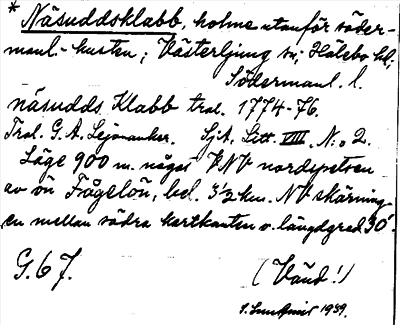 * Näsuddsklabb, holme utanför söder-
manl.-kusten; Västerljung sn; Hölebo hd,
Södermanl. l.
näsudds Klabb tral. 1774-76.
Tral. G. A. Lejonanker. SjA, Litt. VIII, N:o 2.
Läge 900 m. något VNV nordspetsen
av ön Fågelön, bel. 3½ km. NV skärning-
en mellan södra kartkanten o. längdgrad 30'.
G. 67. (Vänd!)
1939.